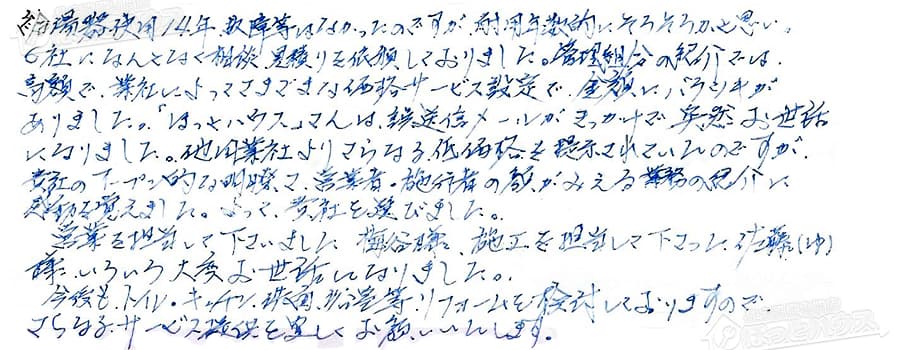 給湯器使用14年、故障等はなかったのですが、耐用年数的にそろそろかと思い
6社になんとなく相談、見積りを依頼しておりました。管理組合の紹介では、
高額で、業社によってさまざまな価格サービス設定で、金額にバラツキが
ありました。「ほっとハウス」さんは、誤送信メールがきっかけで突然お世話
になりました。他同業社よりさらなる低価格を提示されていたのですが、
貴社のオープン的な明瞭さ、営業者・施行者の顔がみえる業務の紹介に
感動を覚えました。よって、貴社を選びました。
営業を担当して下さいました梅谷様、施工を担当して下さった佐藤(ゆ)
様、いろいろ大変お世話になりました。
今後も、トイレ・キッチン、浴室等、リフォームを検討しておりますので、
さらなるサービス提供を宜しくお願いいたします。
ほっとハウス